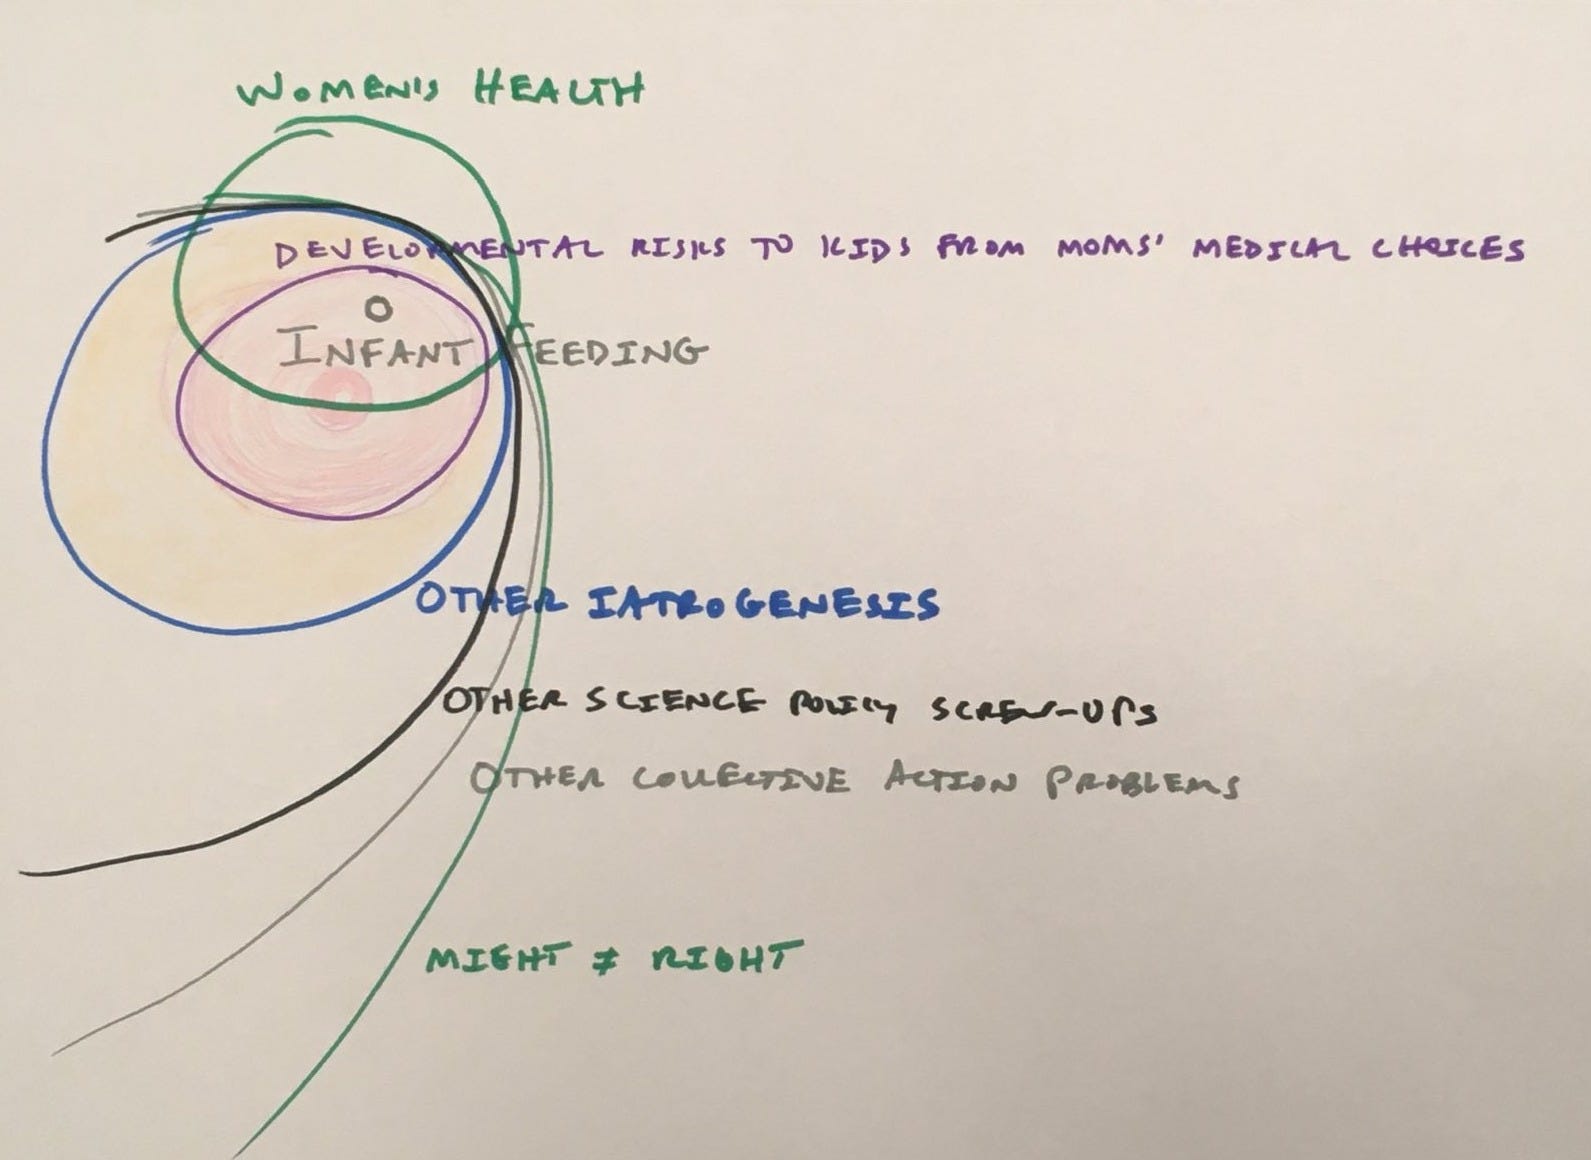 WOMEN'S HEALTH
DEVELOPMENTAL RISKS TO KIDS FROM MOMS' MEDICAL CHOICES
INFANT FEEDING
OTHER IATROGENESIS
OTHER SCIENCE POLICY SCREW-UPS
OTHER COLLECTIVE ACTION PROBLEMS
MIGHT ≠ RIGHT